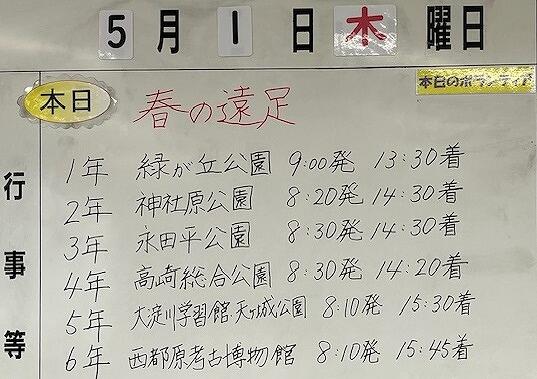 5月1日木曜日
本日のボランティア
本日 春の遠足
行事等
1年 緑が丘公園 9:00発 13:30着
2年 神社原公園 8:20発 14:30着
3年 永田平公園 8:30発 14:30着
4年 高崎総合公園 8:30発 14:20着
5年 大淀川学習館・天ヶ城公園 8:10発 15:30着
6年 西都原考古博物館 8:10発 15:45着